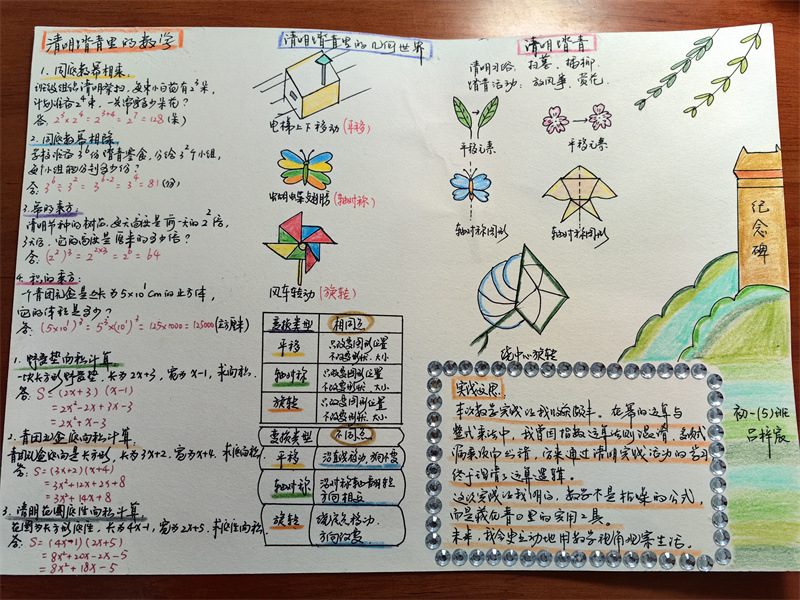 清明踏青里的数学
1. 同底数幂相乘.
班级组织清明祭扫, 每束小白菊有2³朵,
计划准备2⁴束, 一共需要多少朵花?
答: 2³×2⁴=2³⁺⁴=2⁷=128 (朵)
2. 同底数幂相除
学校准备3⁶份清青零食, 分给3²个小组,
每个小组能分到多少份?
答: 3⁶÷3²=3⁶⁻²=3⁴=81 (份)
3. 幂的乘方
清明节种的树苗, 每天高度是前一天的2²倍,
3天后, 它的高度是原来的多少倍?
答: (2²)³=2²ˣ³=2⁶=64
4. 积的乘方:
一个青团礼盒是边长为5×10¹cm的正方体,
它的体积是多少?
答: (5×10¹)³=5³×(10¹)³=125×1000=125000 (立方厘米)
1. 野餐垫面积计算
一块长方形野餐垫, 长为2x+3, 宽为x-1, 求面积.
答: S=(2x+3)(x-1)
=2x²-2x+3x-3
=2x²+x-3
2. 青团礼盒底面积计算:
青团礼盒底面是长方形, 长为3x+2, 宽为x+4. 求底面积
答: S=(3x+2)(x+4)
=3x²+12x+2x+8
=3x²+14x+8
3. 清明花圃底面积计算
花圃为长方形底座, 长为4x-1, 宽为2x+5, 求底座面积.
答: S=(4x-1)(2x+5)
=8x²+20x-2x-5
=8x²+18x-5
清明踏青里的几何世界
电梯上下移动 (平移)
(轴对称)
风车转动 (旋转)
变换类型 相同点
平移 只改变图形位置
不改变形状、大小
轴对称 只改变图形位置
不改变形状、大小
旋转 只改变图形位置
不改变形状、大小
变换类型 不同点
平移 沿直线移动, 方向不变
轴对称 沿对称轴翻转
方向相反
旋转 绕定点转动,
方向改变.
清明踏青
清明习俗: 扫墓、插柳、
踏青活动: 放风筝、赏花.
平移元素
平移元素
轴对称图形
轴对称图形
绕中心旋转
纪念碑
实践反思:
本次数学实践让我收获颇丰. 在幂的运算与
整式乘法中, 我曾因指数运算法则混淆, 多项式
漏乘项中出错, 后来通过清明实践活动的学习
终于理清了运算逻辑.
这次实践让我明白, 数学不是枯燥的公式,
而是藏在春日里的实用工具.
未来, 我会更主动地用数学视角观察生活.
初一(5)班
吕梓宸